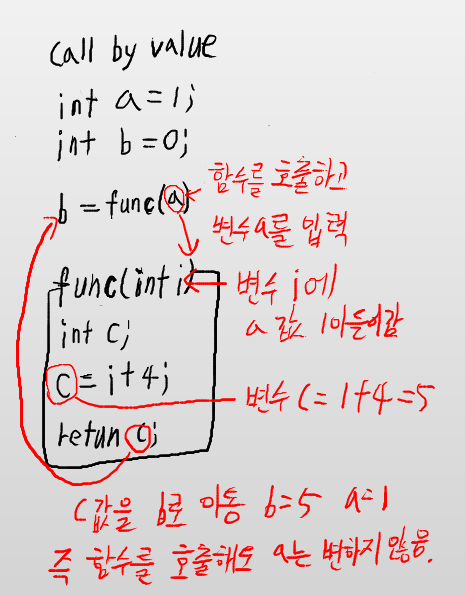 call by value
int a=1;
int b=0;
b=func(a)
함수를 호출하고
변수a를 입력
func(int i)
변수 i에
a 값 1이들어감
int c;
c=i+4;
변수 c=1+4=5
retun c;
c값을 b로 이동 b=5 a=1
즉 함수를 호출해도 a는 변하지 않음.